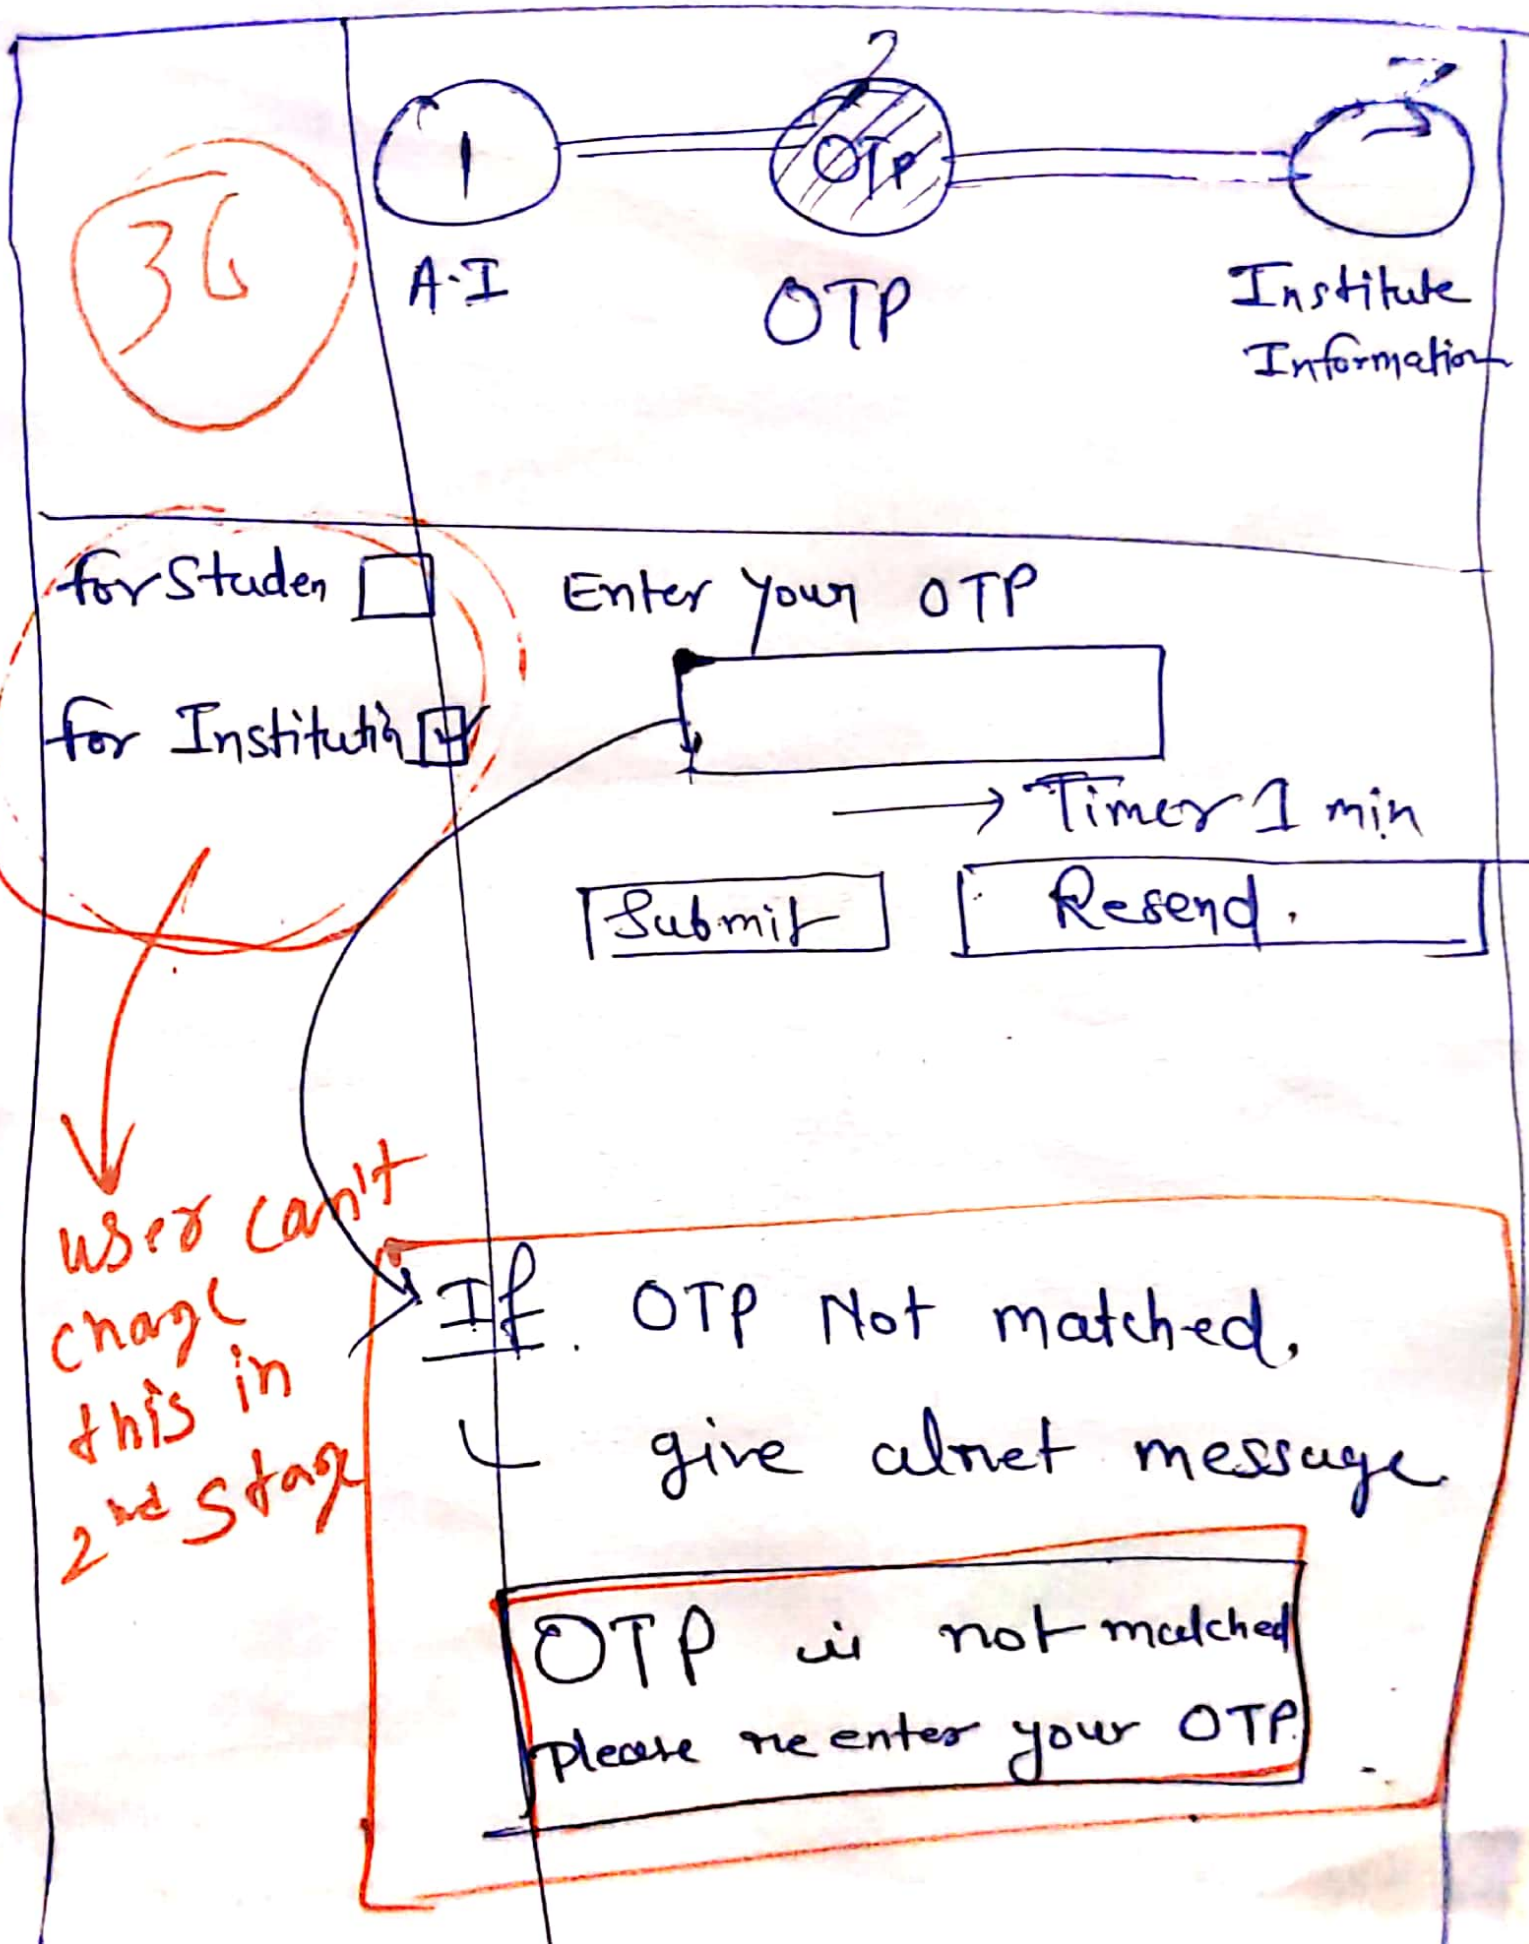 36
1
2
OTP
3
A.I
OTP
Institute
Information
for Studen
Enter your OTP
for Institutin
Timer 1 min
Submit
Resend.
user can't
change
this in
2nd stage
If. OTP Not matched.
give alret message
OTP is not matched
please re enter your OTP.